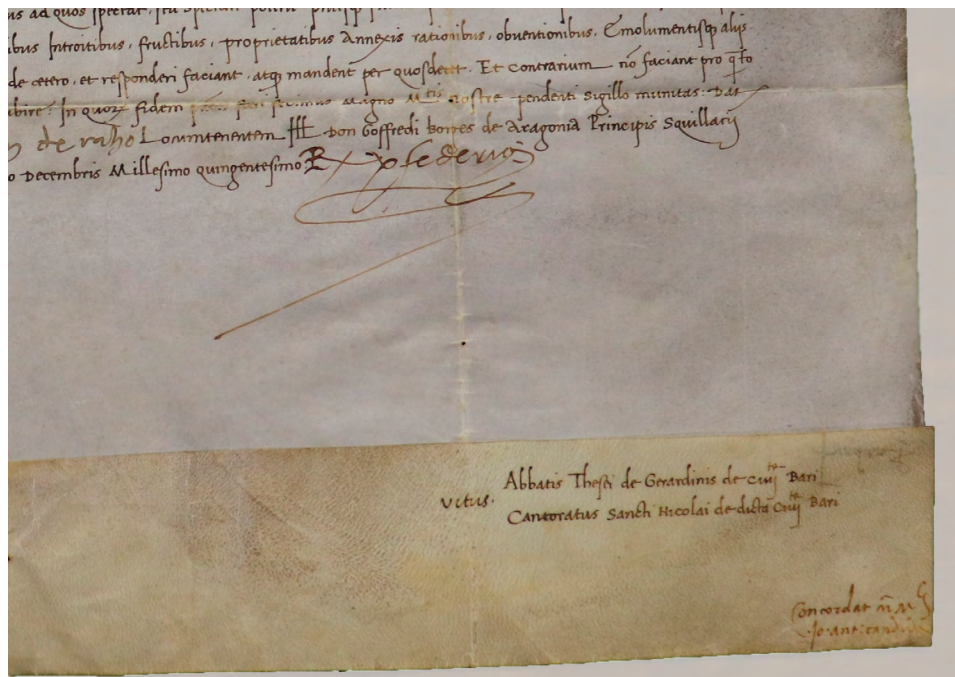 us ad quos spectat
ibus Introitibus, fructibus, proprietatibus Annexis rationibus, obventionibus, Emolumentisq alijs
de cetero, et responderi faciant, atq mandent per quos decet. Et contrarium nō faciant pro q̄to
In quorʒ fidem fecimus Magno Mtis nostre pendenti sigillo munitas: Dat
de raho Locumtenentem Ill. Don Goffredi borres de Aragonia Principis Squillacij
o Decembris Millesimo quingentesimo Rex federicus
Abbatis Thesei de Gerardinis de Ciujte Bari
vitus.
Cantoratus Sancti Nicolai de dicta Ciujte Bari
Concordat
Jo. ant.